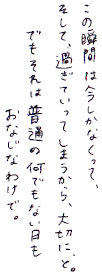 この瞬間は今しかなくって、
そして、過ぎていってしまうから、大切に、と。
でもそれは普通の何でもない日も
おなじなわけで。